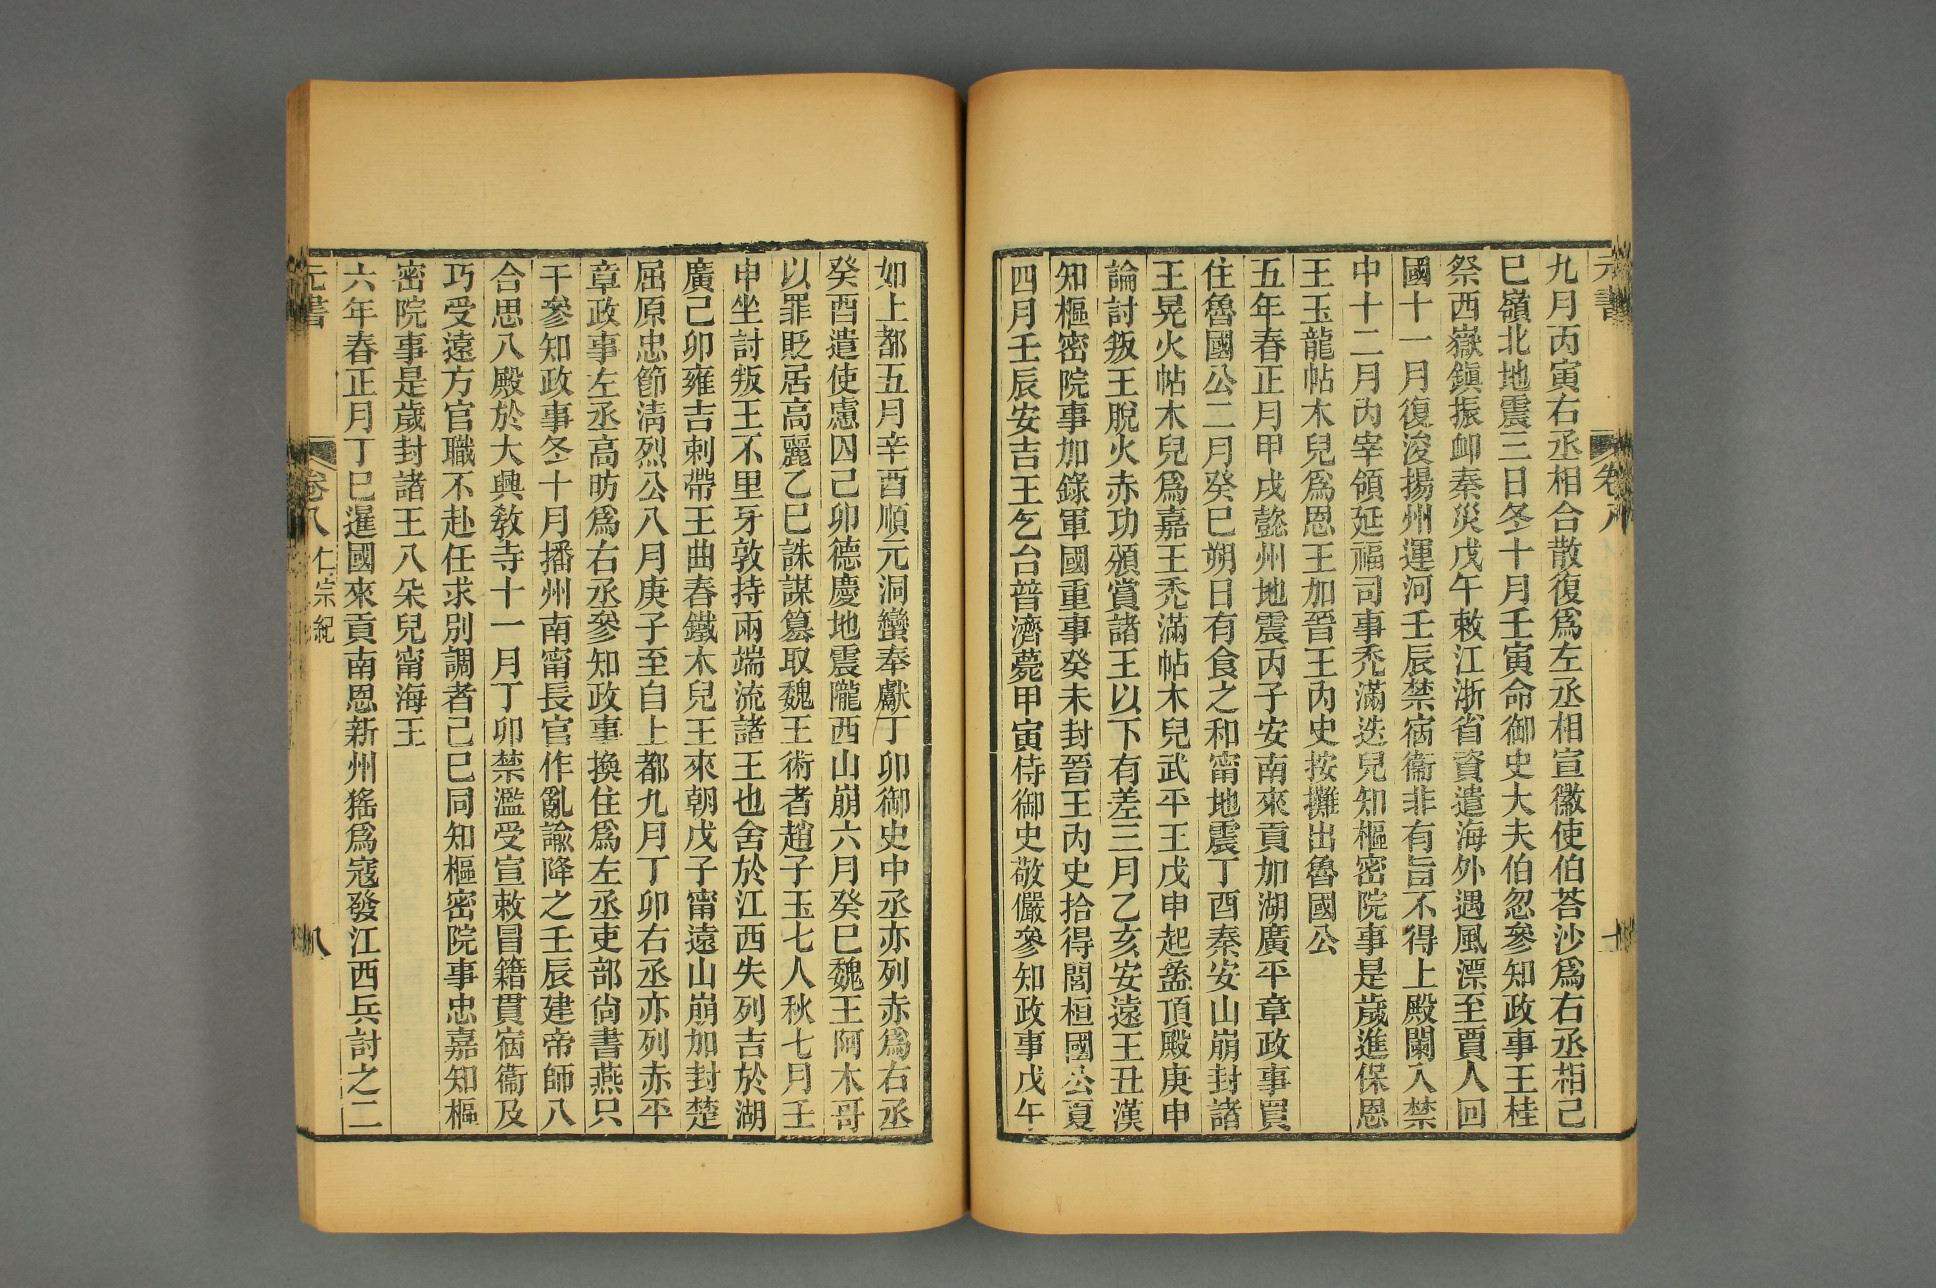 元書
卷八
九月丙寅右丞相合散復爲左丞相宣徽使伯荅沙爲右丞相己
巳嶺北地震三日冬十月壬寅命御史大夫伯忽參知政事王桂
祭西嶽鎮振卹秦災戊午敕江浙省資遣海外遇風漂至賈人回
國十一月復浚揚州運河壬辰禁宿衞非有旨不得上殿闌入禁
中十二月內宰領延福司事禿滿迭兒知樞密院事是歲進保恩
王玉龍帖木兒爲恩王加晉王內史按攤出魯國公
五年春正月甲戌懿州地震丙子安南來貢加湖廣平章政事買
住魯國公二月癸巳朔日有食之和甯地震丁酉秦安山崩封諸
王晃火帖木兒爲嘉王禿滿帖木兒武平王戊申起盝頂殿庚申
論討叛王脫火赤功頒賞諸王以下有差三月乙亥安遠王丑漢
知樞密院事加錄軍國重事癸未封晉王內史拾得閭桓國公夏
四月壬辰安吉王乞台普濟薨甲寅侍御史敬儼參知政事戊午
如上都五月辛酉順元洞蠻奉獻丁卯御史中丞亦列赤爲右丞
癸酉遣使慮囚己卯德慶地震隴西山崩六月癸巳魏王阿木哥
以罪貶居高麗乙巳誅謀簒取魏王術者趙子玉七人秋七月壬
申坐討叛王不里牙敦持兩端流諸王也舍於江西失列吉於湖
廣己卯雍吉剌帶王曲春鐵木兒王來朝戊子甯遠山崩加封楚
屈原忠節淸烈公八月庚子至自上都九月丁卯右丞亦列赤平
章政事左丞高昉爲右丞參知政事換住爲左丞吏部尙書燕只
干參知政事冬十月播州南甯長官作亂諭降之壬辰建帝師八
合思八殿於大興敎寺十一月丁卯禁濫受宣敕冒籍貫宿衞及
巧受遠方官職不赴任求別調者己巳同知樞密院事忠嘉知樞
密院事是歲封諸王八朵兒甯海王
六年春正月丁巳暹國來貢南恩新州猺爲寇發江西兵討之二
元書
卷八
仁宗紀
八